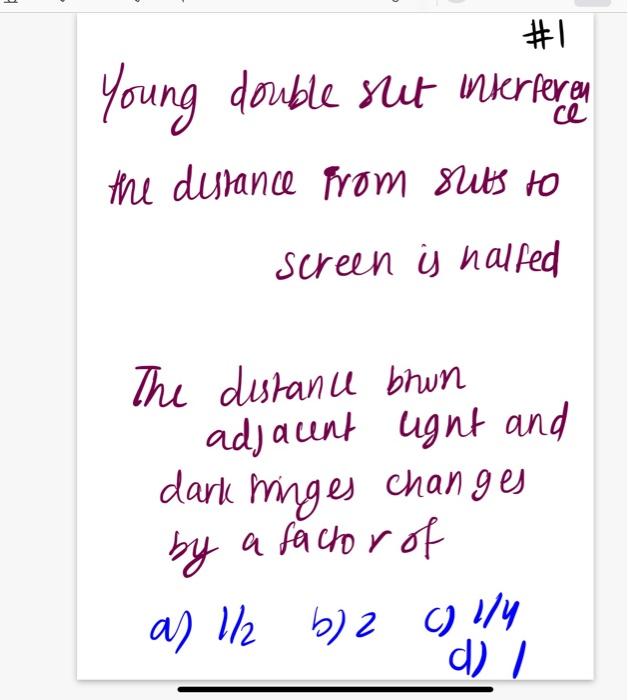 #1
Young double slit interference
the distance from slits to
screen is halfed
The distance btwn
adjacent light and
dark fringes changes
by a factor of
a) 1/2 b) 2 c) 1/4
d) 1